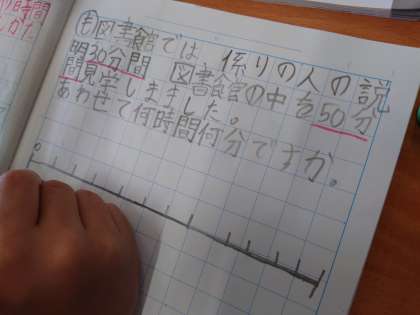 も図書館では 係りの人の説
間30分間 図書館の中を50分
間見学しました。
あわせて何時間何分ですか。
0